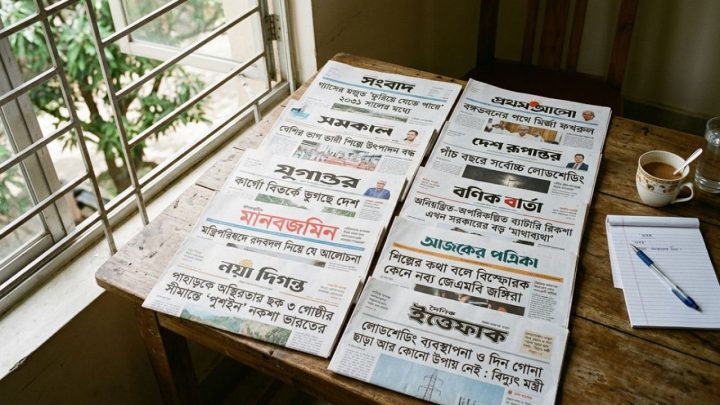 সংবাদ
গ্যাসের মজুত ফুরিয়ে যেতে পারে
২০৩১ সালের মধ্যে
সমকাল
বেশির ভাগ ভারী শিল্পে উৎপাদন বন্ধ
যুগান্তর
কার্গো বিতর্কে ভুগছে দেশ
মানবজমিন
মন্ত্রিপরিষদে রদবদল নিয়ে যে আলোচনা
নয়া দিগন্ত
পাহাড়কে অস্থিরতার ছক ৩ গোষ্ঠীর
সীমান্তে 'পুশইন' নকশা ভারতের
প্রথম আলো
বঙ্গভবনের পথে মির্জা ফখরুল
দেশ রূপান্তর
পাঁচ বছরে সর্বোচ্চ লোডশেডিং
বণিক বার্তা
অনিয়ন্ত্রিত-অপরিকল্পিত ব্যাটারি রিকশা
এখন সরকারের বড় 'মাথাব্যথা'
আজকের পত্রিকা
শিল্পের কথা বলে বিস্ফোরক
কেনে নব্য জেএমবি জঙ্গিরা
দৈনিক
ইত্তেফাক
লোডশেডিং ব্যবস্থাপনা ও দিন গোনা
ছাড়া আর কোনো উপায় নেই : বিদ্যুৎ মন্ত্রী